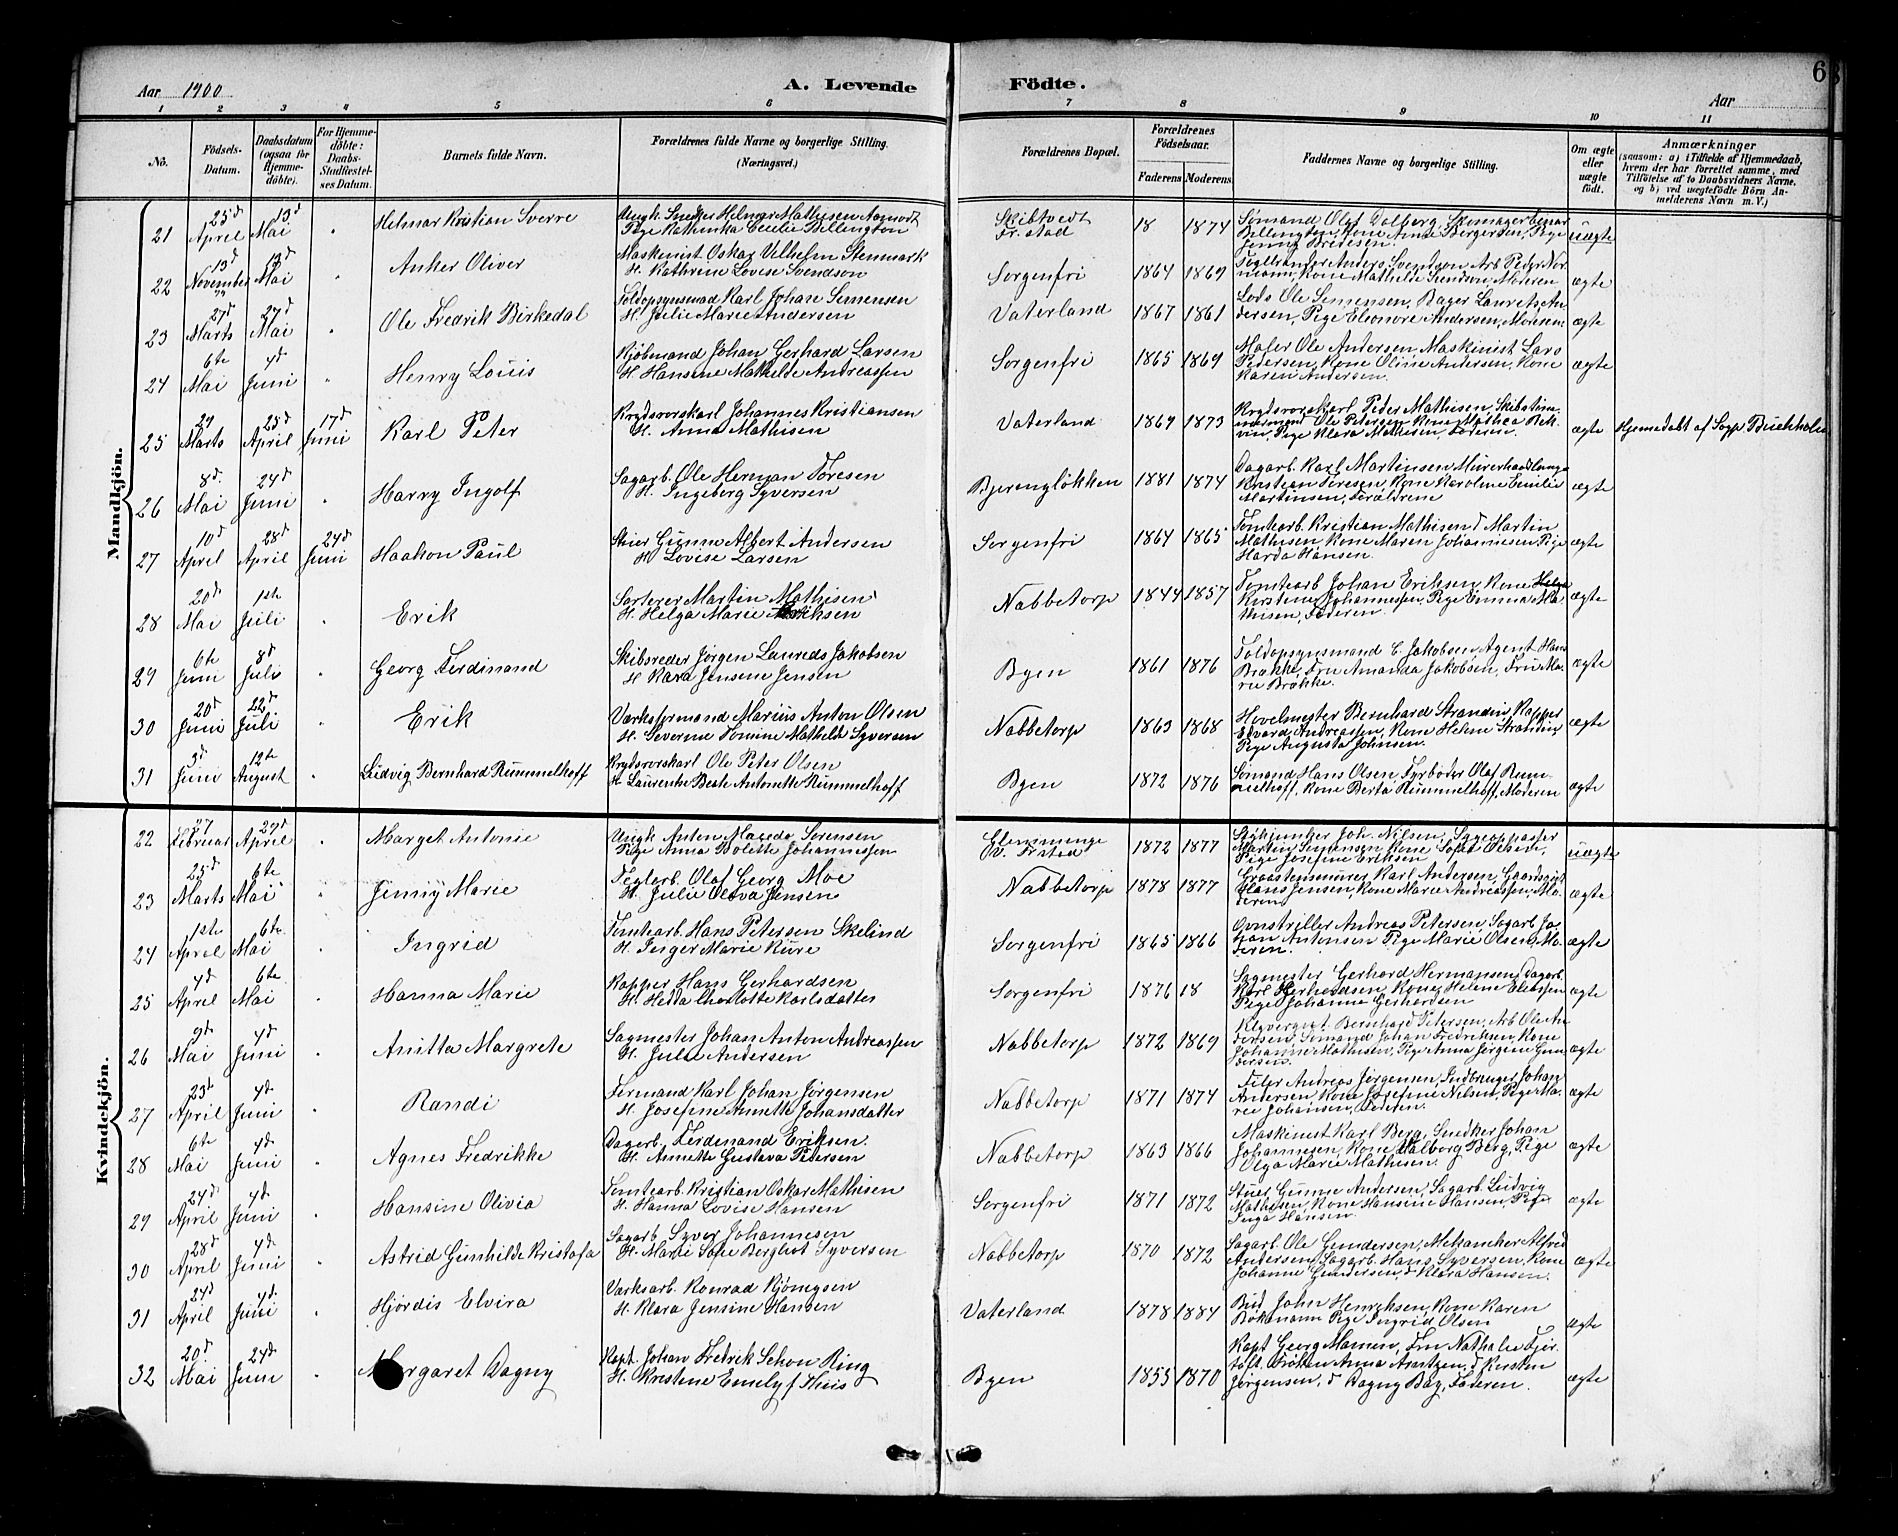 Aar 1900
A. Levende Födte.
Aar
6
1 2 3 4 5 6 7 8 9 10 11
No.
Födsels-Datum.
Daabsdatum (ogsaa for Hjemme-döbte).
For Hjemme-döbte: Daabs-Stadfæstel-ses Datum.
Barnets fulde Navn.
Forældrenes fulde Navne og borgerlige Stilling. (Næringsvei.)
Forældrenes Bopæl.
Forældrenes Födselsaar.
Faderens Moderens
Faddernes Navne og borgerlige Stilling.
Om ægte eller uægte födt.
Anmærkninger
(saasom: a) i Tilfælde af Hjemmedaab,
hvem der har forrettet samme, med
Tilföielse af to Daabsvidners Navne,
og b) ved uegtefödte Börn An-
melderens Navn m.V.)
Mandkjön.
21 25d April 13d Mai Helmar Kristian Sverre
Ungk. Snedker Helmer Mathisen Aamodt
Pige Kathinka Cecilie Billington
Skibtvedt Fr.stad 18 1874
Sømand Olaf Dalberg, Skomager Einar
Billington, Kone Anne Bergersen, Pige
Jenny Bredesen. uægte
22 13d November 99 13d Mai Anker Oliver
Maskinist Oskar Vilhelm Stenmark
H. Kathrine Lovise Svendson
Sorgenfri 1864 1869
Anders Svendson Arb. Peder Nor-
mann, Kone Mathilde Svendson, Moderen ægte
23 27d Marts 27d Mai Ole Fredrik Birkedal
Toldopsynsmad Karl Johan Simensen
H. Julie Marie Andersen
Vaterland 1867 1861
Lods Ole Simensen, Bager Lauretz An-
dersen, Pige Eleonore Andersen, Moderen ægte
24 6te Mai 4d Juni Henry Louis
Kjöbmand Johan Gerhard Larsen
H. Hansine Mathilde Andreassen
Sorgenfri 1865 1869
Maler Ole Andersen, Maskinist Lars
Pedersen, Kone Oline Andersen, Kone
Karen Andersen. ægte
25 29 Marts 25d April 17d Juni Karl Peter
Krydsvorskarl Johannes Kristiansen
H. Anna Mathisen
Vaterland 1869 1873
Krydsvorskarl Peder Mathisen, Skibstöm-
mermand Ole Petersen, Kone Mathea Rek-
vin, Pige Klara Mathisen, Faderen. ægte
Hjemmedöbt af Sogp. Buchholm
26 8d. Mai 24d Juni Harry Ingolf
Sagarb. Ole Herman Töresen
H. Ingeborg Syversen
Bjerengløkken 1881 1874
Dagarb. Karl Martinsen, Murerhandlanger
Kristian Töresen, Kone Karoline Emilie
Martinsen, Forældrene ægte
27 10d April 28d April 24d Juni Haakon Paul
Stuer Gunne Albert Andersen
H. Lovise Larsen
Sorgenfri 1864 1865
Tomtearb. Kristian Mathisen, d Martin
Mathisen, Kone Maren Johannesen, Pige
Harda Hansen. ægte
28 20d Mai 1ste Juli Erik
Sorterer Martin Mathisen
H. Helga Marie Eriksen
Nabbetorp 1844 1857
Tomtearb Johan Eriksen, Kone
Kirstine Johannessen, Pige Emma Ma-
thisen, Faderen. ægte
29 6te Juni 8d Juli Georg Ferdinand
Skibsreder Jörgen Laureds Jakobsen
H Kara Jensine Jensen
Byen 1861 1876
Toldopsynsmand C. Jakobsen, Agent Hans
Brökke, Fru Amanda Jakobsen, Fru Ma-
rie Brökke. ægte
30 20d Juni 22d Juli Erik
Værksformand Marius Anton Olsen
H. Severine Tomine Mathilde Syversen
Nabbetorp 1863 1868
Hövelmester Bernhard Strandin, Kapper
Edvard Andreassen, Kone Helene Strandin,
Pige Augusta Johnsen. ægte
31 3d Juni 12te August Ludvig Bernhard Rummelhoff
Krydsvorskarl Ole Peter Olsen
H Laurentse Beate Antonette Rummelhoff
Byen 1872 1876
Sömand Hans Olsen, Fyrböder Olaf Rum-
melhoff, Kone Berta Rummelhoff, Moderen ægte
Kvindekjön.
22 27 Februar 29d April Marget Antonie
Ungk Anton Maredo Sörensen
Pige Anna Bolette Johannessen
Glemminge v. Frstad 1872 1877
Joh. Nilsen, Sygeopasser
Martin Sörensen, Kone Sofie Olsen,
Pige Josefine Eriksen uægte
23 25d Marts 6te Mai Jenny Marie
Teglarb. Olaf Georg Moe
H. Julie Oleva Jensen
Nabbetorp 1878 1877
Graastensmurer Karl Andersen, Gaardsgut
Hans Jensen, Kone Marie Andreassen, Mo-
deren ægte
24 1ste April 6te Mai Ingrid
Tomtearb. Hans Petersen Skelind
H. Inger Marie Kure
Sorgenfri 1865 1866
Ovnstriller Andreas Petersen, Sagarb Jo-
han Antonsen Pige Marie Olsen, Mo-
deren. ægte
25 4d April 6te Mai Hanna Marie
Kapper Hans Gerhardsen
H. Hedda Charlotte Karlsdatter
Sorgenfri 1876 18
Sagmester Gerhard Hermansen, Dagarb.
Karl Gerhardsen, Kone Helene Eliassen
Pige Johanne Gerhardsen ægte
26 9d Mai 4d Juni Anitta Margrete
Sagmester Johan Anton Andreassen
H. Julie Andersen
Nabbetorp 1872 1869
Bernhard Petersen, Arb Ole An-
dersen, Sömand Johan Fredriksen, Kone
Johanne Mathisen, Pige Anna Jörgine Gun-
dersen. ægte
27 23d April 4d Juni Randi
Formand Karl Johan Jörgensen
H. Josefine Annette Johansdatter
Nabbetorp 1871 1874
Filer Andreas Jörgensen, Indbringer Johan
Andersen, Kone Josefine Nilsen, Pige Ma-
rie Johansen, Faderen. ægte
28 6te Mai 4d Juni Agnes Fredrikke
Dagarb. Ferdinand Eriksen.
H. Annette Gustava Petersen
Nabbetorp 1863 1866
Maskinist Karl Berg, Snedker Johan
Johannesen, Kone Valborg Berg, Pige
Olga Marie Mathisen. ægte
29 24d April 4d Juni Hansine Olivia
Tomtearb. Kristian Oskar Mathisen
H. Hanna Lovise Hansen
Sorgenfri 1871 1872
Stuer Gunne Andersen, Sagarb. Ludvig
Mathisen, Kone Hansine Hansen, Pige
Inga Hansen. ægte
30 28d April 4d Juni Astrid Gunhilde Kristofa
Sagarb. Syver Johannesen
H. Marie Sofie Bergliot Syversen
Nabbetorp 1870 1872
Sagarb. Ole Gundersen, Mekaniker Alfred
Andersen, Sagarb. Hans Syversen, Kone
Johanne Gundersen, d Klara Hansen. ægte
31 24d April 4d. Juni Hjördis Elvira
Værksarb. Konrad Kjönigsen
H. Klara Jensine Hansen
Vaterland 1878 1884
Bud John Henriksen, Kone Karen
Bökmann Pige Ingrid Olsen ægte
32 20d. Mai 24d Juni Margaret Dagny
Kapt. Johan Fredrik Schon Ring
H. Kristine Emely f. Huis
Byen 1855 1870
Kapt Georg Mamen, Fru Nathalie Fjer-
toft, Fröken Anna Arntzen, d Kirsten
Jörgensen, d Dagny Bay, Faderen. ægte